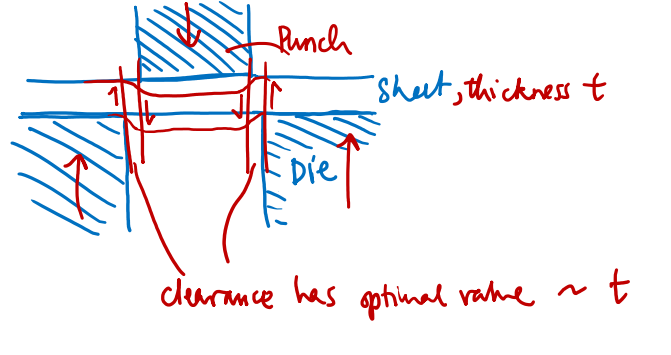 Punch
Sheet, thickness t
Die
clearance has optimal value ~ t